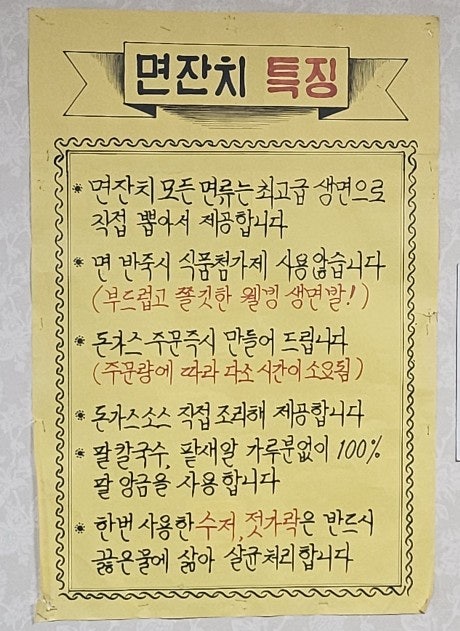 면잔치 특징
* 면잔치 모든 면류는 최고급 생면으로
직접 뽑아서 제공합니다
* 면 반죽시 식품첨가제 사용않습니다
(부드럽고 쫄깃한 웰빙 생면발!)
* 돈까스 주문즉시 만들어 드립니다
(주문량에 따라 다소 시간이 소요됨)
* 돈가스소스 직접 조리해 제공합니다
* 팥칼국수, 팥새알 가루분없이 100%
팥 앙금을 사용합니다
* 한번 사용한 수저, 젓가락은 반드시
끓은물에 삶아 살균처리합니다